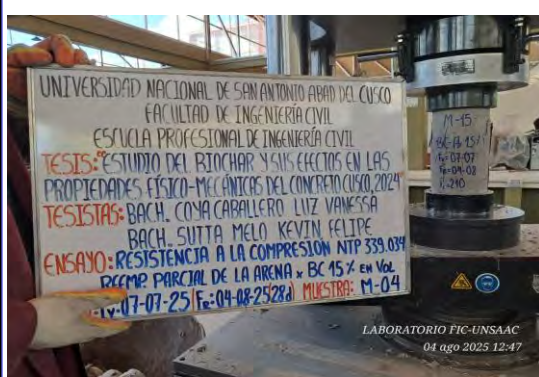 UNIVERSIDAD NACIONAL DE SAN ANTONIO ABAD DEL CUSCO
FACULTAD DE INGENIERÍA CIVIL
ESCUELA PROFESIONAL DE INGENIERÍA CIVIL
TESIS: "ESTUDIO DEL BIOCHAR Y SUS EFECTOS EN LAS
PROPIEDADES FÍSICO-MECÁNICAS DEL CONCRETO CUSCO, 2024"
TESISTAS: BACH. COYA CABALLERO LUZ VANESSA
BACH. SUTTA MELO KEVIN FELIPE
ENSAYO: RESISTENCIA A LA COMPRESIÓN NTP 339.034
REEMP. PARCIAL DE LA ARENA x BC 15% EN VOL
07-07-25 Fe: 04-08-25 (28d) MUESTRA: M-04
M-15
15%
07-07
04-08
210
LABORATORIO FIC-UNSAAC
04 ago 2025 12:47